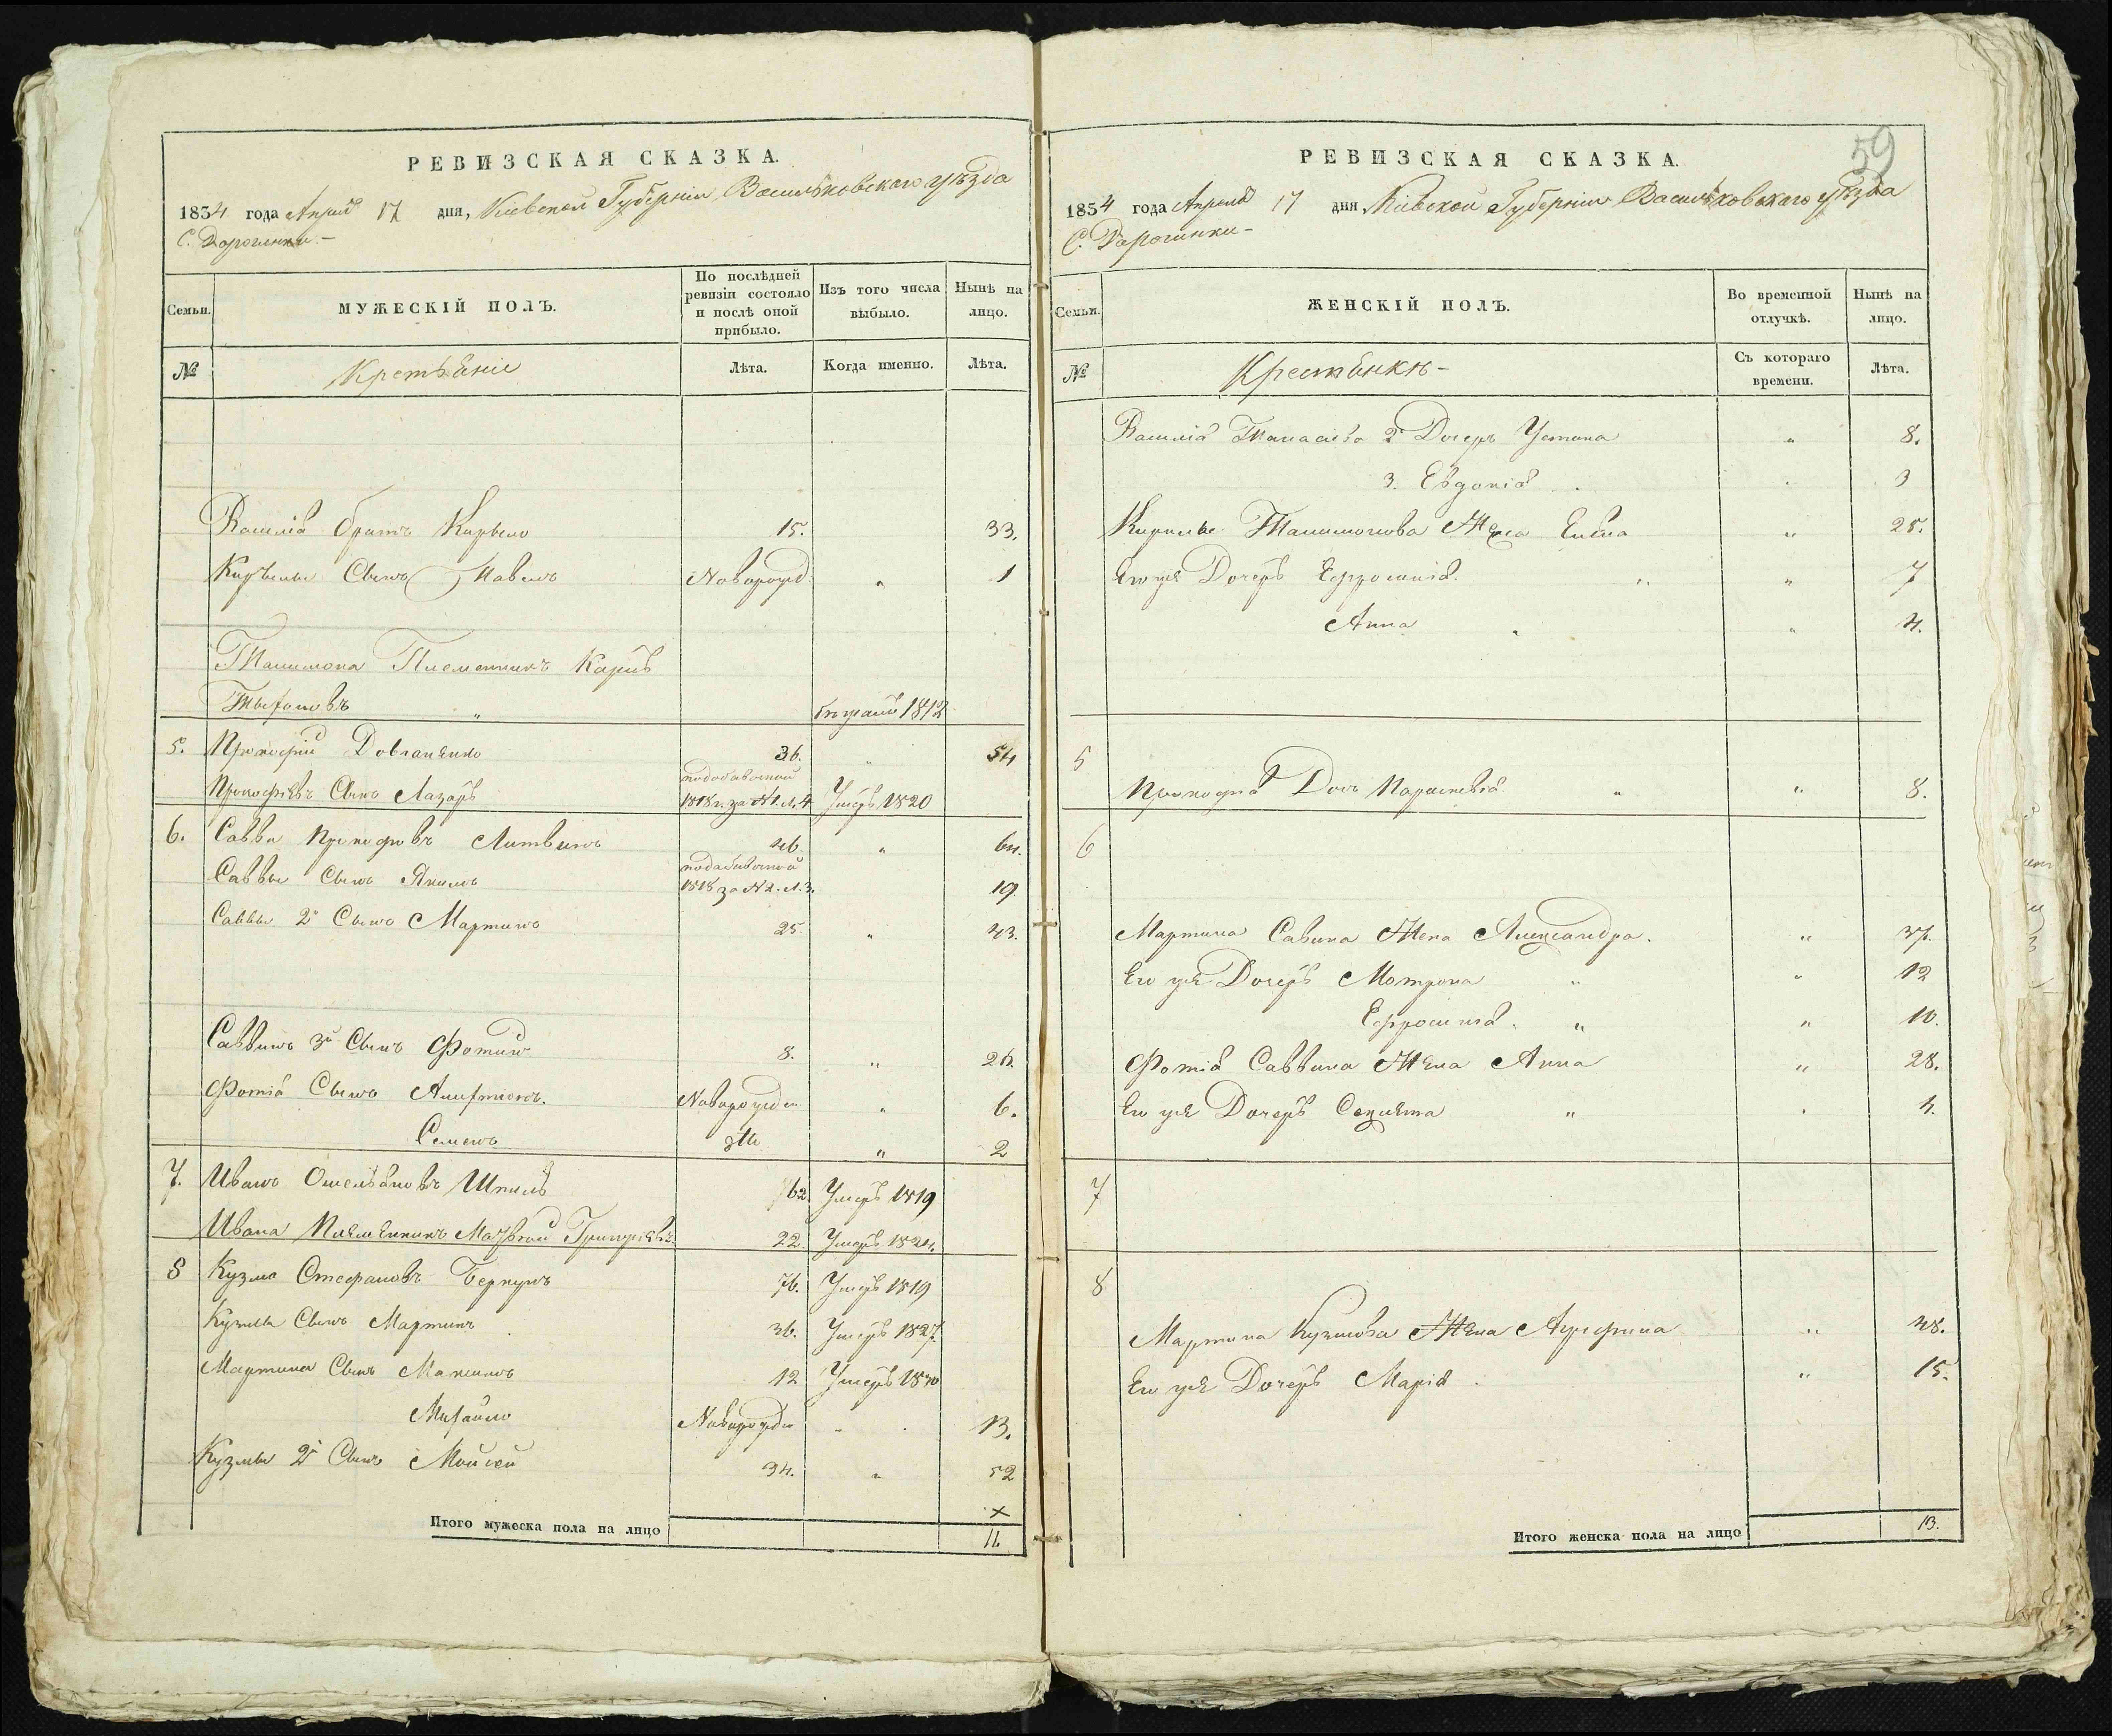 РЕВИЗСКАЯ СКАЗКА.
1834 года Апреля 17 дня, Кіевской Губерніи Васильковскаго уѣзда
С. Дорогинки.–
Семьи.
МУЖЕСКІЙ ПОЛЪ.
По послѣдней ревизіи состояло и послѣ оной прибыло.
Изъ того числа выбыло.
Нынѣ на лицо.
№
Крестьяніе
Лѣта.
Когда именно.
Лѣта.
Василія братъ Кирыло 15. 33.
Кирылы Сынъ Павелъ Новорожд. „ 1
Племенникъ
„ 1812
5. Прокофій Довгаленко 36. „ 54
Прокофіевъ Сынъ Лазарь 1818 г. за №1. л. 4 Умеръ 1820
6. Савва Прокофовъ Литвинъ 46 „ 64.
Саввы Сынъ Якимъ 1818 за №2. л. 3. 19.
Саввы 2й Сынъ Мартинъ 25 „ 43.
Саввинъ 3й Сынъ Фотій 8. „ 26.
Фотія Сынъ Новорожден „ 6.
Семенъ „ 2
7. Иванъ Омельяновъ Шпиль 62 Умеръ 1819
Ивана Племенникъ Григорьевъ 22. Умеръ 1824.
8 Кузма Стефановъ Беркунъ 76. Умеръ 1819
Кузмы Сынъ Мартинъ 36. Умеръ 1827.
Мартина Сынъ Максимъ 12 Умеръ
Михайло Новорожден „ 13.
Кузмы 2й Сынъ Мойсей 34. „ 52
×
Итого мужеска пола на лицо 11.
59
РЕВИЗСКАЯ СКАЗКА.
1834 года Апреля 17 дня Кіевской Губерніи Васильковскаго уѣзда
С. Дорогинки–
Семьи.
ЖЕНСКІЙ ПОЛЪ.
Во временной отлучкѣ.
Нынѣ на лицо.
№
Крестьянки–
Съ котораго времени.
Лѣта.
Василія 2 Дочерь Устина „ 8.
3. Евдокія 3
Кирилы Жена „ 25.
Его же Дочерь Ефросинія „ „ 7
Анна „ „ 4.
5
Прокофія Дочь Параскевія „ „ 8.
6
Мартина Савина Жена Александра. „ 37.
Его же Дочерь Мотрона „ „ 12
Ефросинія. „ „ 10.
Фотія Саввина Жена Анна „ 28.
Его же Дочерь „ 4.
7
8
Мартина Кузмова Жена Агрефина „ 48.
Его же Дочерь Марія „ 15.
Итого женска пола на лицо 13.